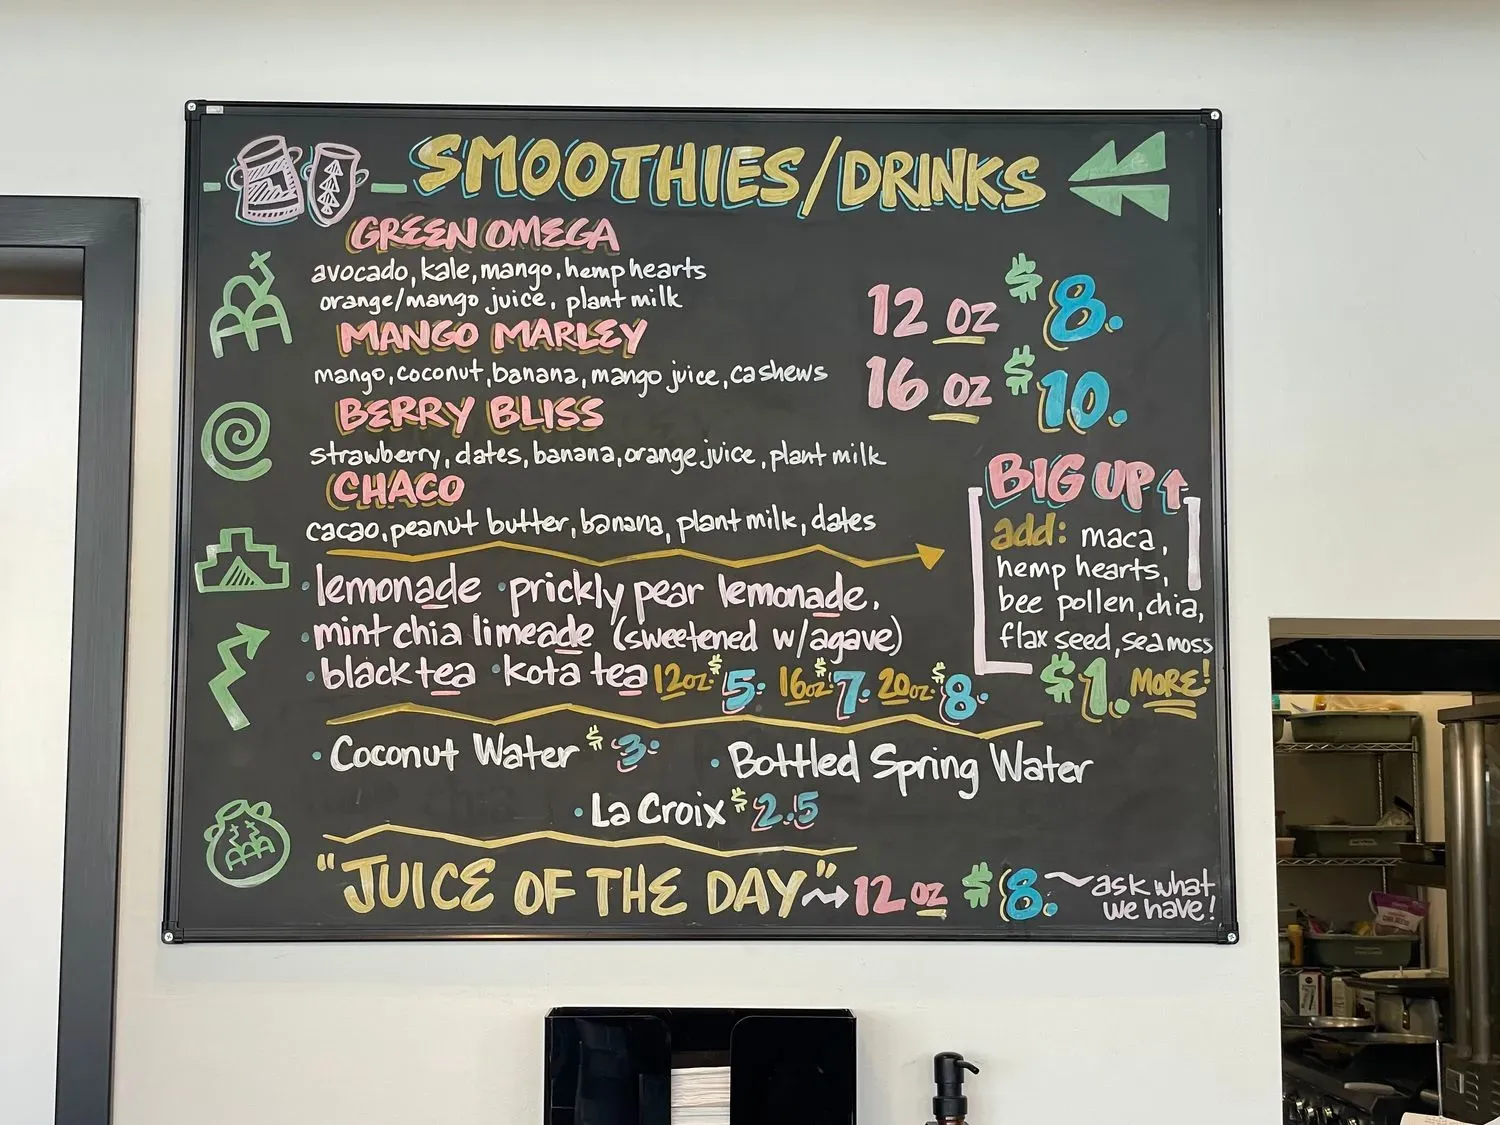 SMOOTHIES/DRINKS
GREEN OMEGA
avocado, kale, mango, hemp hearts
orange/mango juice, plant milk
MANGO MARLEY
mango, coconut, banana, mango juice, cashews
BERRY BLISS
strawberry, dates, banana, orange juice, plant milk
CHACO
cacao, peanut butter, banana, plant milk, dates
12 oz $8.
16 oz $10.
BIG UP
add: maca,
hemp hearts,
bee pollen, chia,
flax seed, sea moss
$1. MORE!
• lemonade • prickly pear lemonade.
• mint chia limeade (sweetened w/agave)
• black tea • kota tea 12oz. $5. 16oz. $7. 20oz. $8.
• Coconut Water $3. • Bottled Spring Water
• La Croix $2.5
"JUICE OF THE DAY" 12 oz $8. ~ask what
we have!